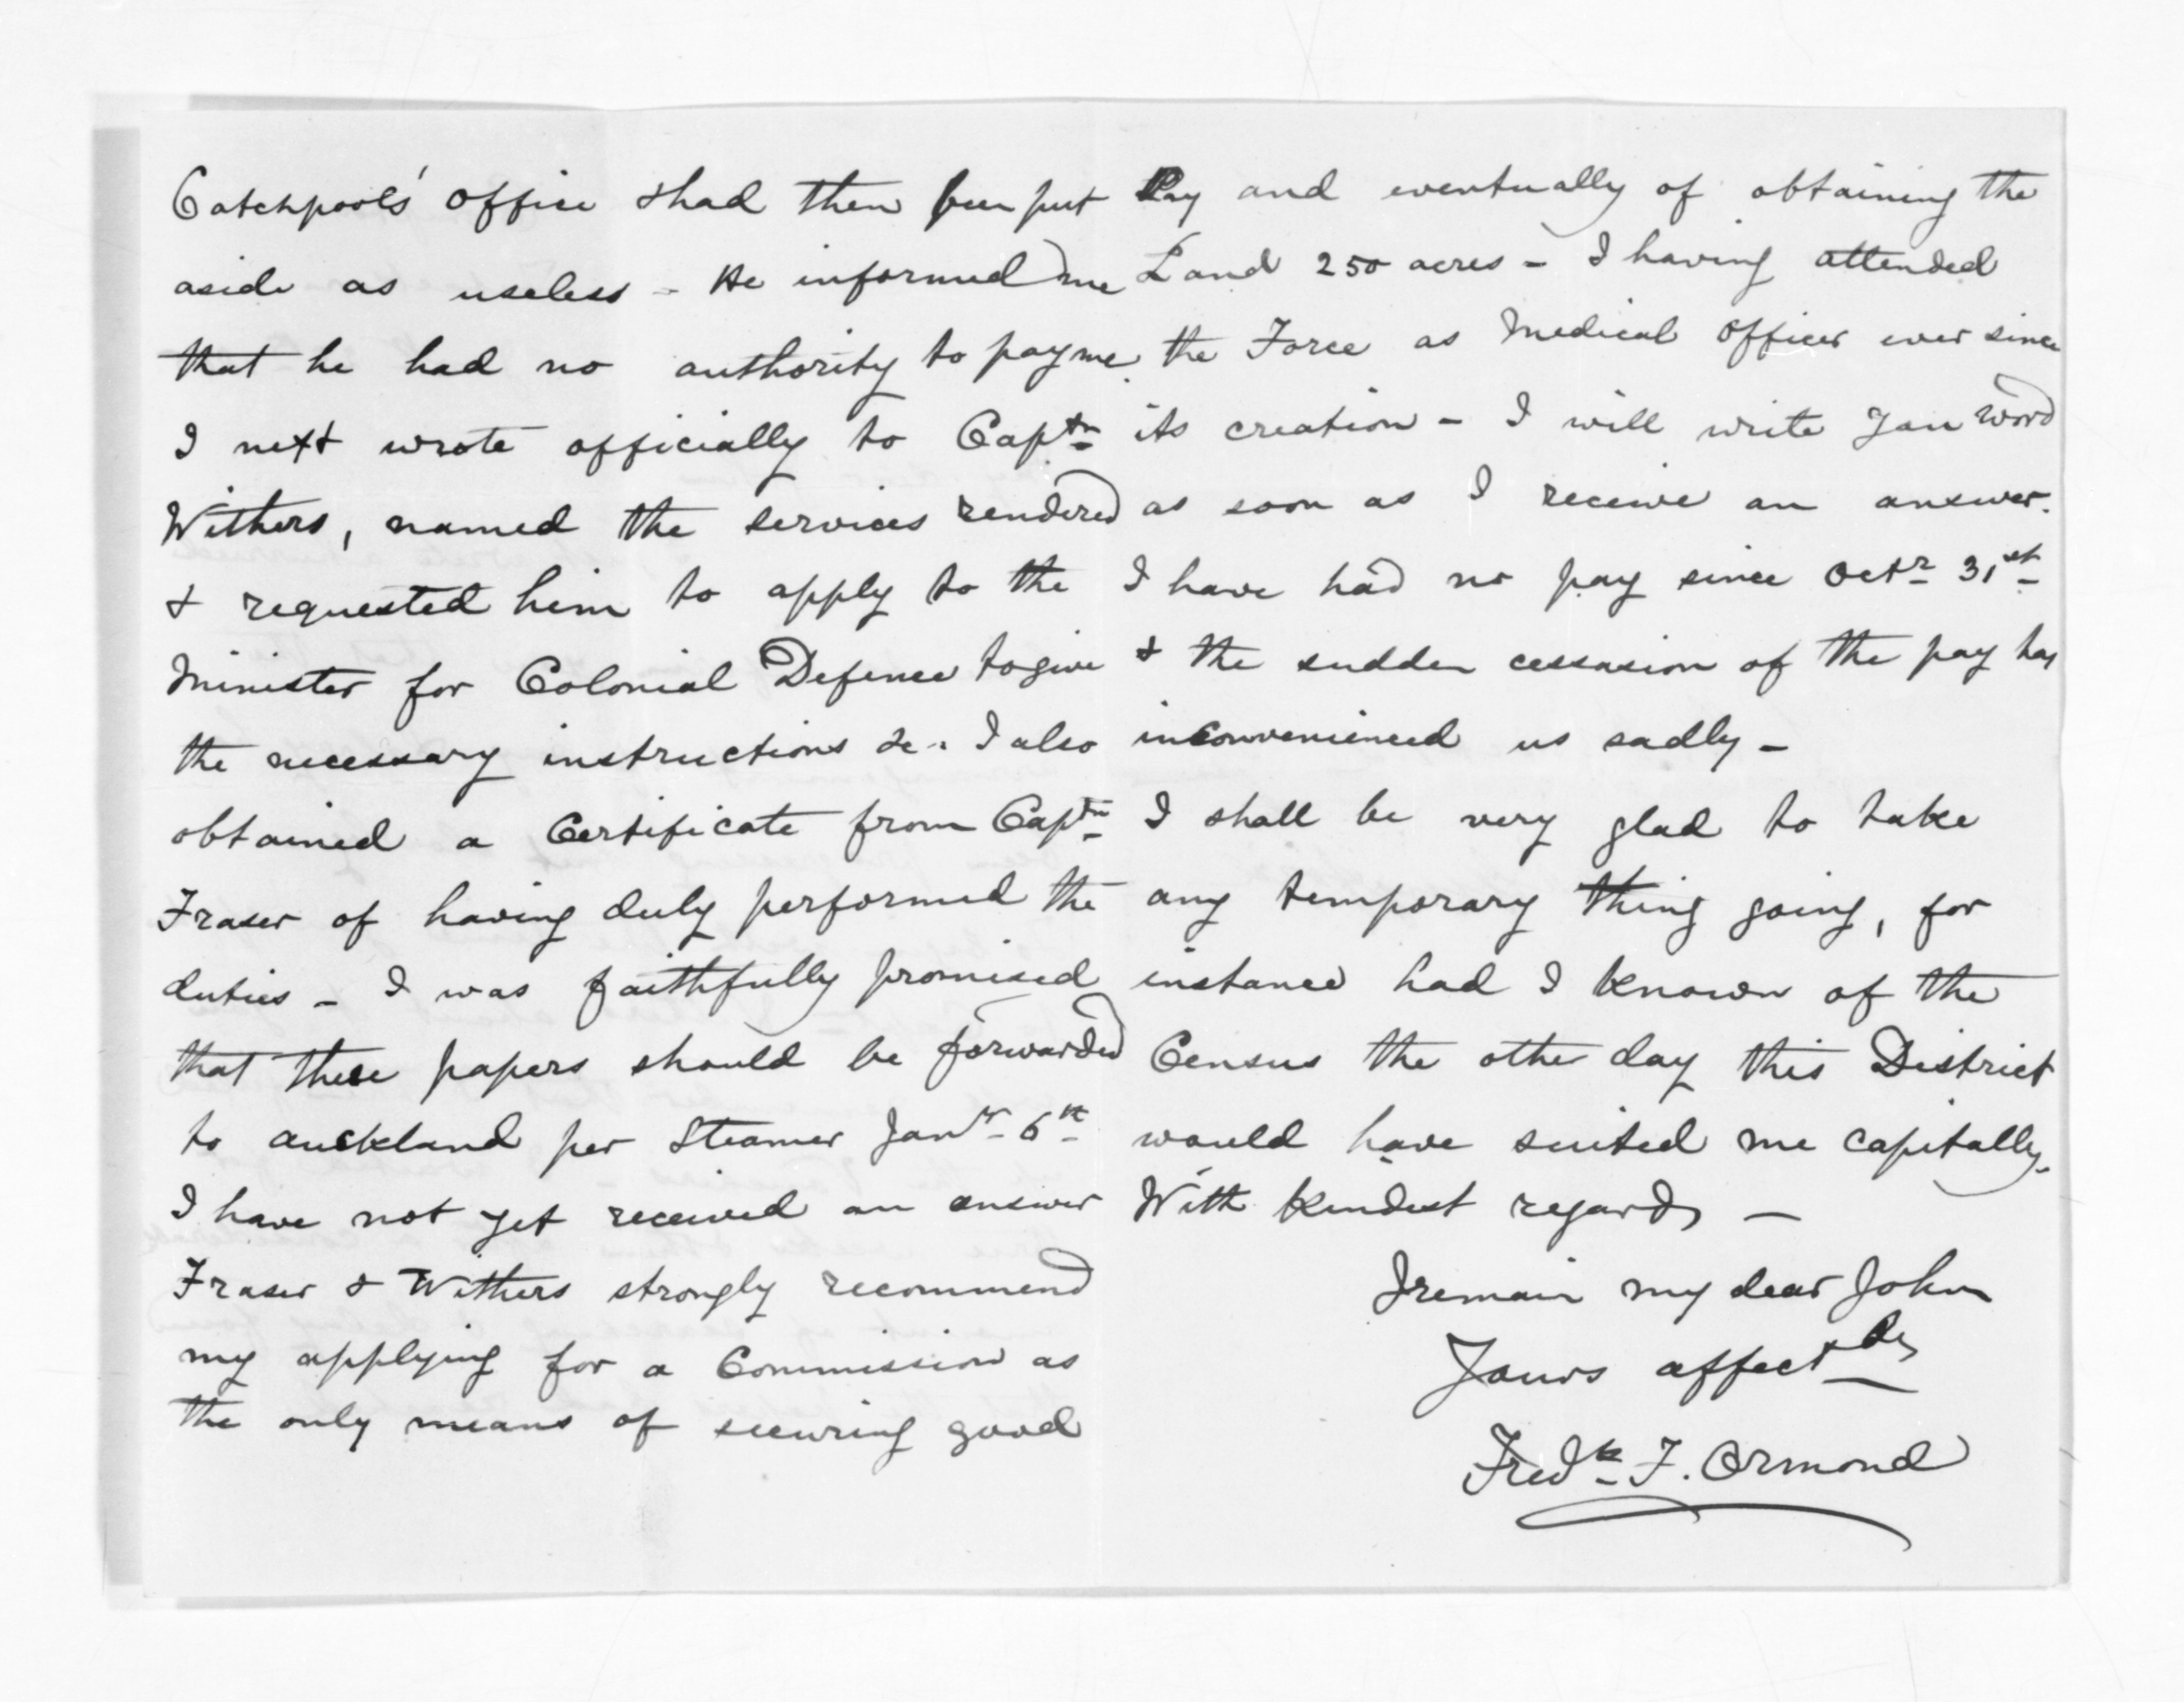 Catchpool's Office & had then been put
aside as useless - He informed me
that he had no authority to pay me.
I next wrote officially to Captn
Withers, named the services rendered
& requested him to apply to the
Minister for Colonial Defence to give
the necessary instructions &c. I also
obtained a Certificate from Captn
Fraser of having duly performed the
duties - I was faithfully promised
that these papers should be forwarded
to Auckland per Steamer Jany 6th
I have not yet received an answer
Fraser & Withers strongly recommend
my applying for a Commission as
the only means of securing good
Pay and eventually of obtaining the
Land 250 acres - I having attended
the Force as Medical Officer ever since
its creation - I will write you word
as soon as I receive an answer.
I have had no pay since Octr 31st
& the sudden cessasion of the pay has
inconvenienced us sadly -
I shall be very glad to take
any temporary thing going, for
instance had I known of the
Census the other day this District
would have suited me capitally.
With kindest regards -
I remain my dear John
Yours affectly
Fredk F. Ormond